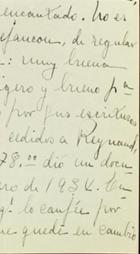 encantado. No es
de regular
: muy buena
ligero y bueno pa
por sus escrituras
cedidos a Reynand,
78.00 dió un docu
ro de 1934. En
q! lo canfíe por
me quedé en cambio